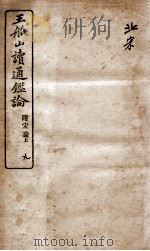 北宋
王船山讀通鑑論
附宋論上 九